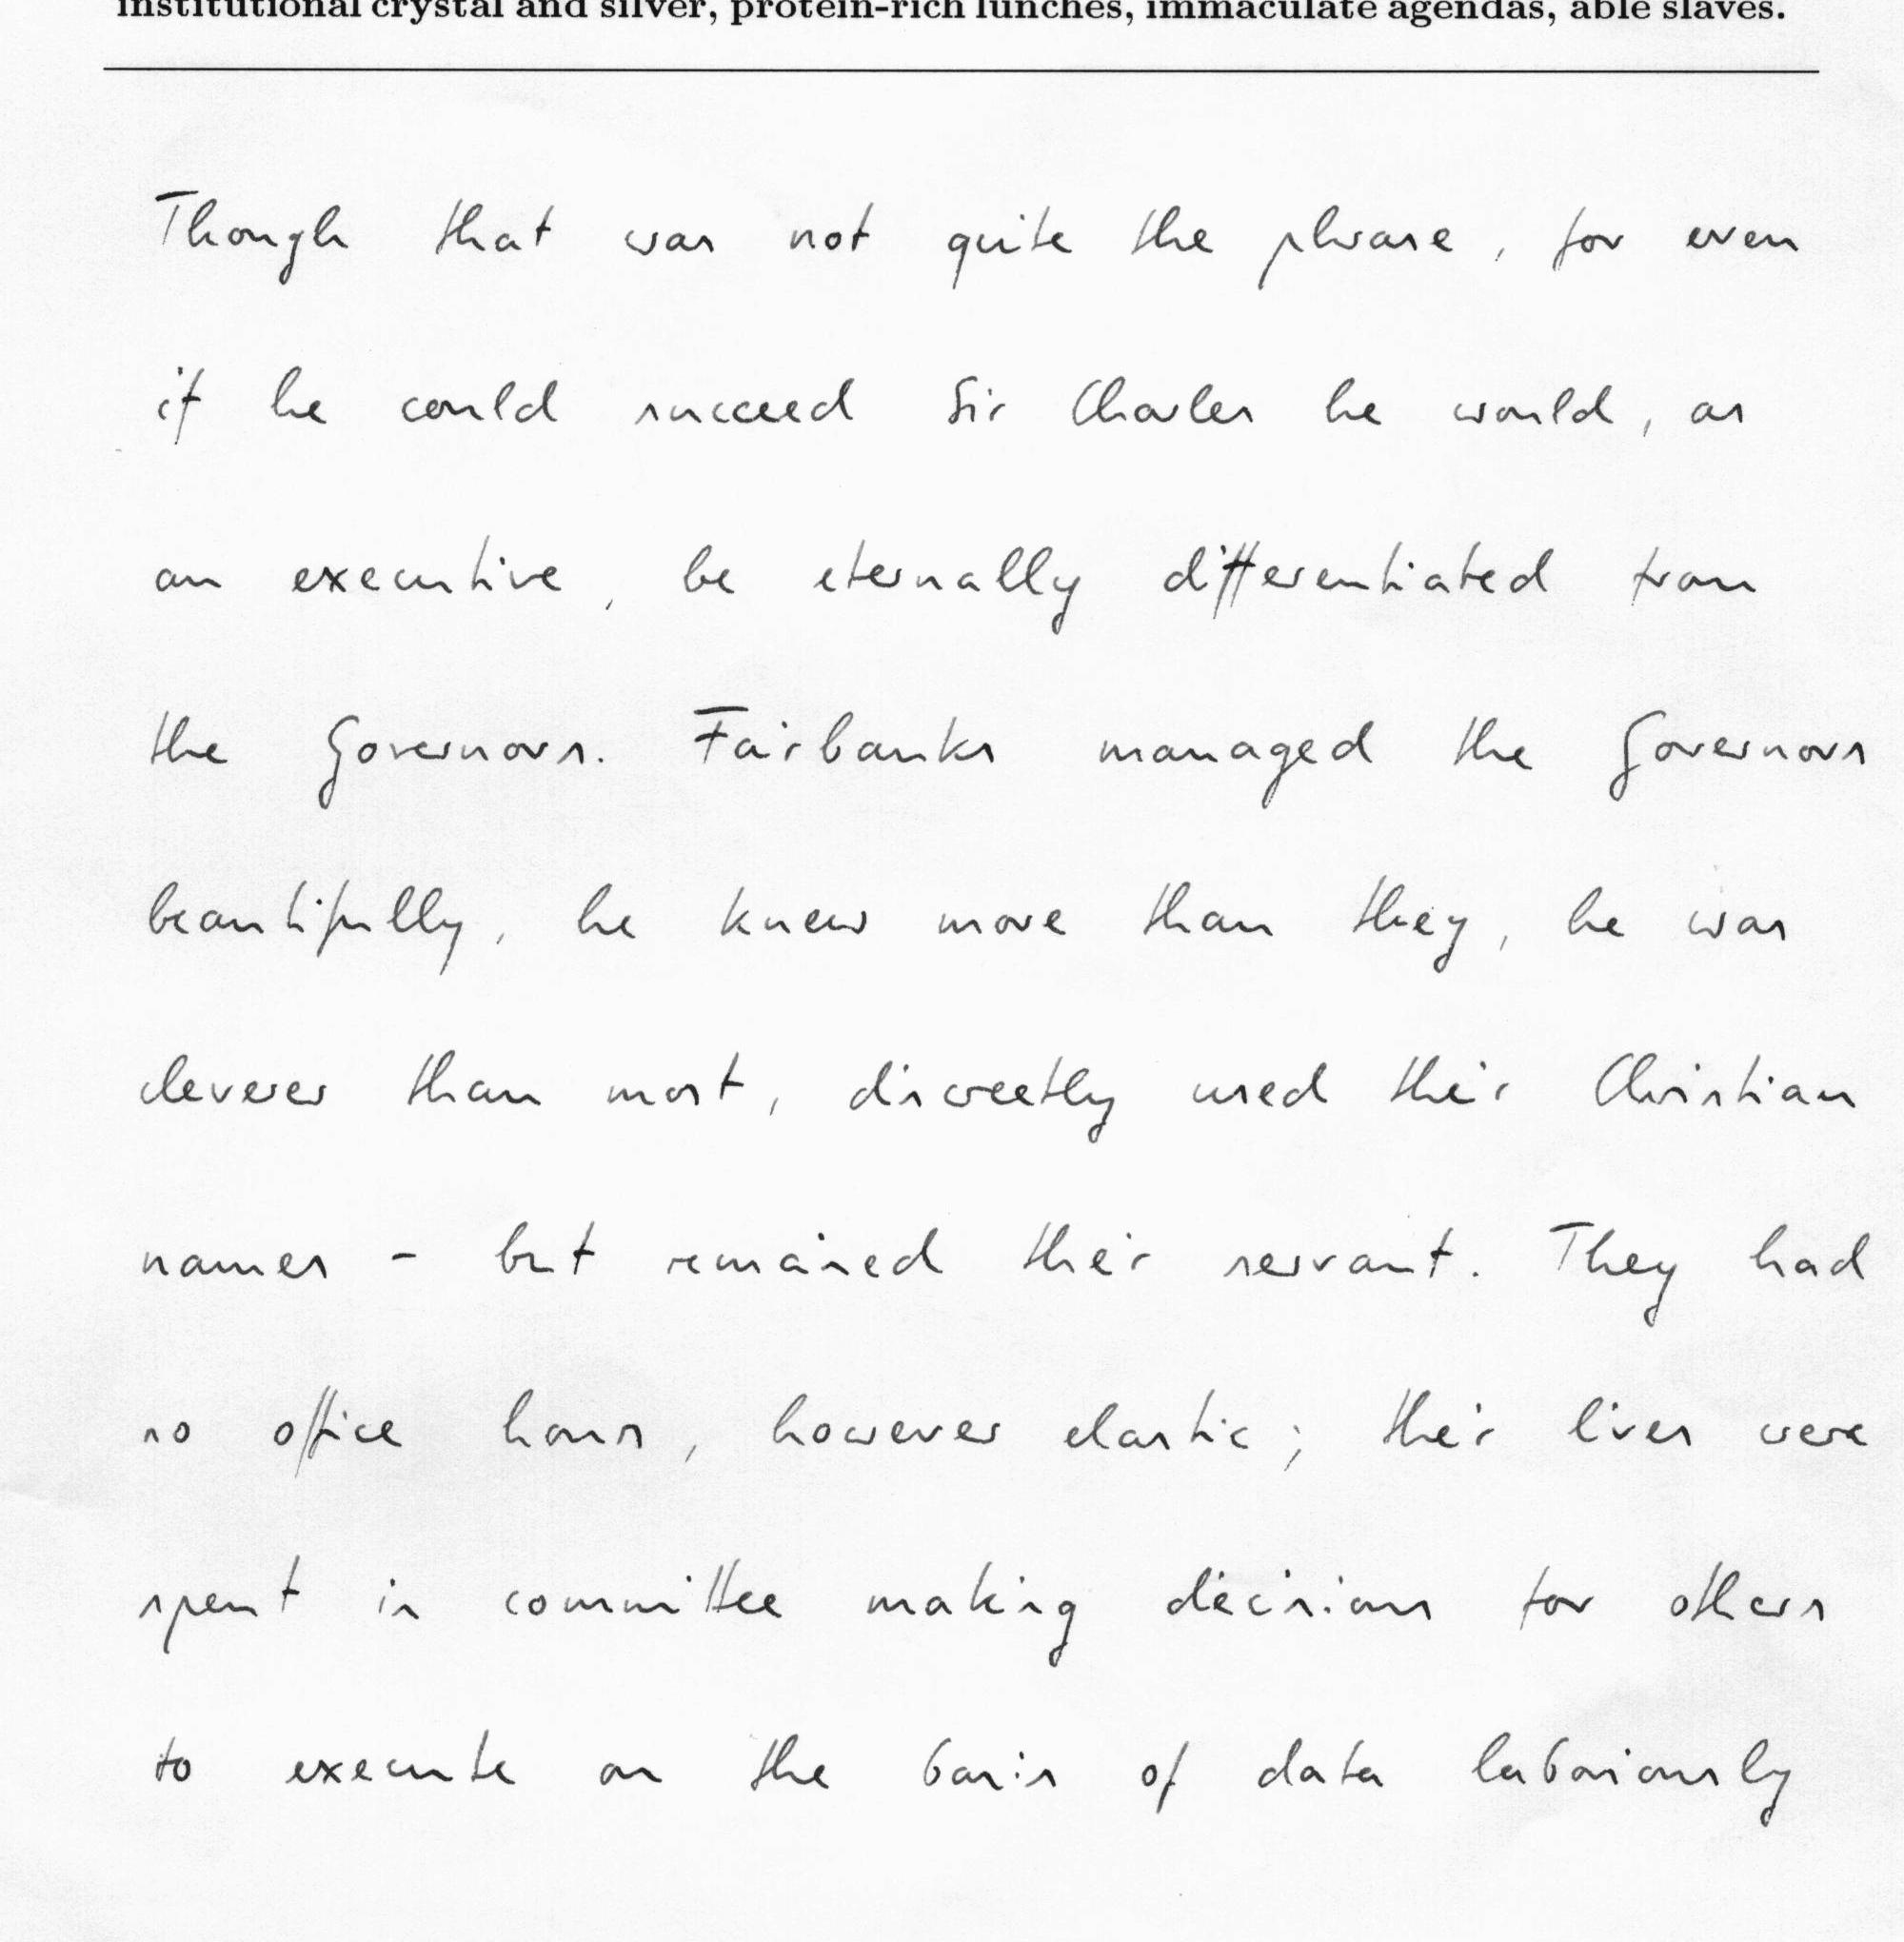 institutional crystal and silver, protein-rich lunches, immaculate agendas, able slaves.
Though that was not quite the phrase, for even
if he could succeed Sir Charles he would, as
an executive, be eternally differentiated from
the Governors. Fairbanks managed the Governors
beautifully, he knew more than they, he was
cleverer than most, discreetly used their Christian
names - but remained their servant. They had
no office hours, however elastic; their lives were
spent in committee making decisions for others
to execute on the basis of data laboriously